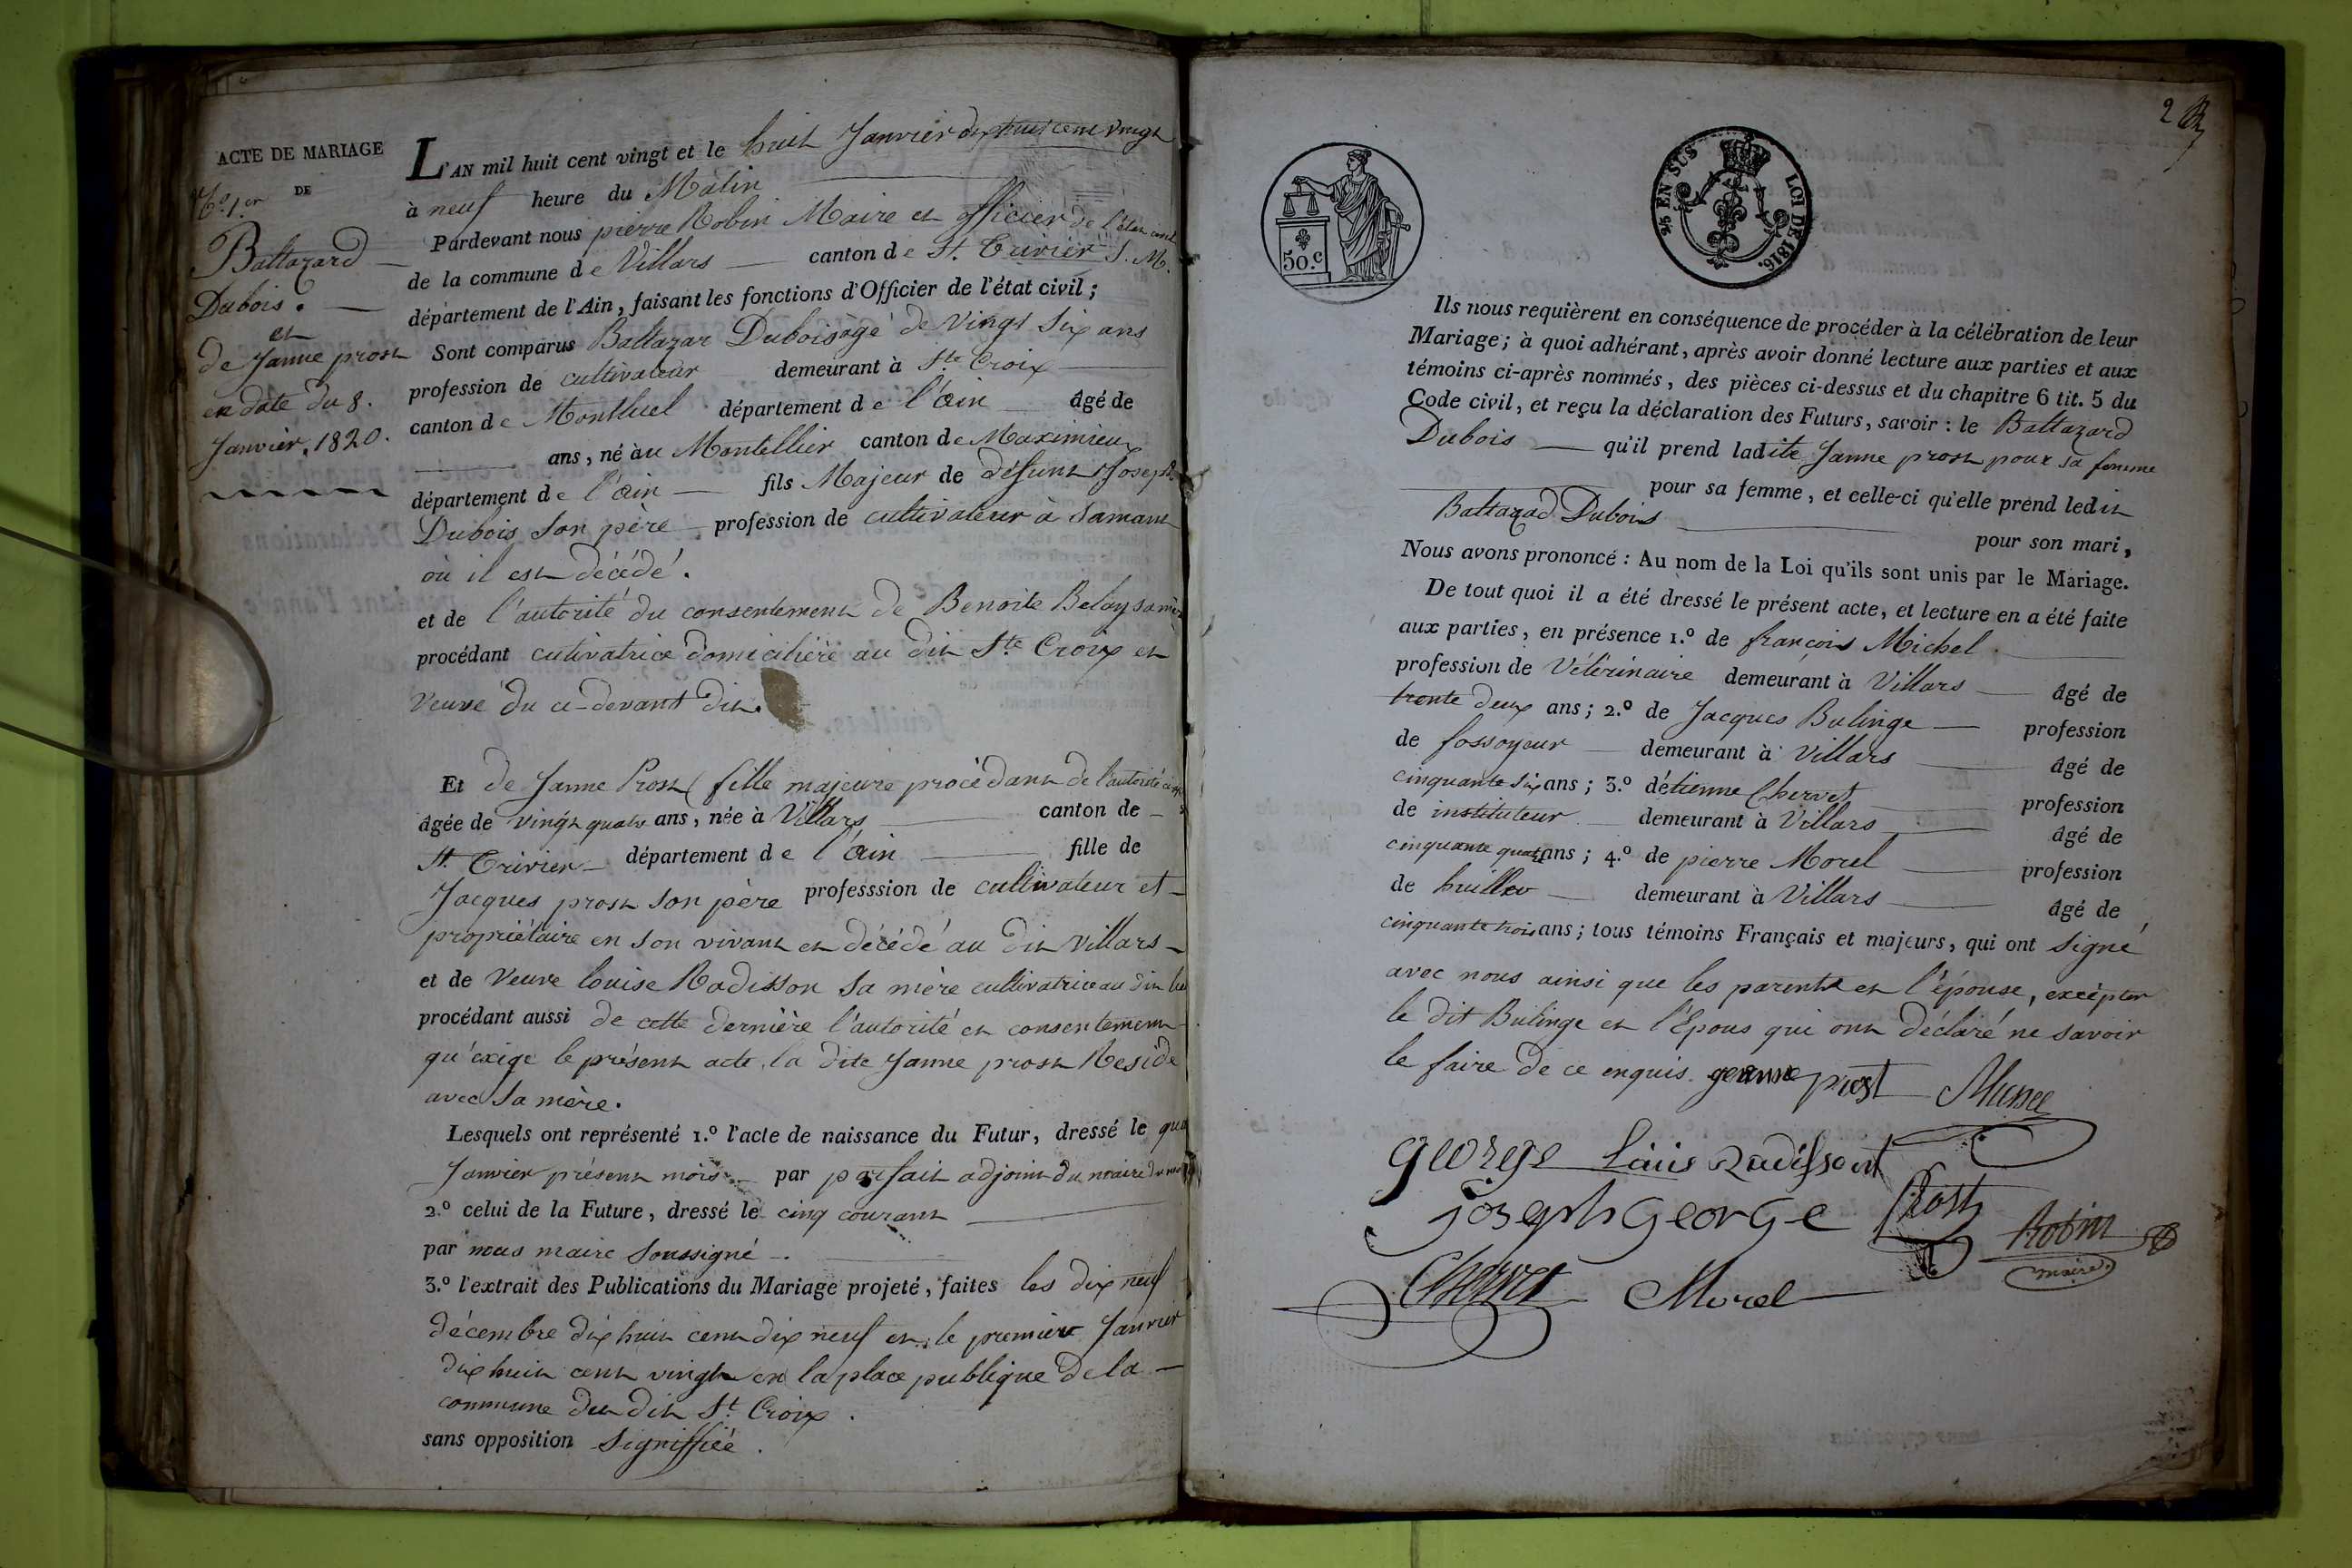 ACTE DE MARIAGE
N.º 1.er DE
Baltazard
Dubois.
et
de Janne prost
en date du 8.
Janvier, 1820.
L'AN mil huit cent vingt et le huit Janvier dix huit cent vingt
à neuf heure du Matin
Pardevant nous pierre Robin Maire et officier de l'état civil
de la commune de Villars canton de St. Trivier S. M.
département de l'Ain, faisant les fonctions d'Officier de l'état civil;
Sont comparus Baltazar Dubois agé de vingt six ans
profession de cultivateur demeurant à Ste Croix
canton de Montluel département de l'ain âgé de
ans, né au Montellier canton de Maximieu
département de l'ain fils Majeur de défunt Joseph
Dubois son père profession de cultivateur à Samans
où il est décédé.
et de l'autorité du consentement de Benoite Belay sa mère
procédant cutivatrice domicilière au dit Ste Croix et
veuve du ci-devant dit.
Et de Janne Prost fille majeure procèdant de l'autorité
âgée de vingt quatre ans, née à Villars canton de
St. Trivier département de l'ain fille de
Jacques prost son père professsion de cultivateur et
propriétaire en son vivant et décédé au dit villars
et de veuve louise Radisson sa mère cultivatrice au dit lieu
procédant aussi de cette dernière l'autorité et consentement
qu'exige le présent acte, la dite Janne prost Reside
avec sa mère.
Lesquels ont représenté 1.º l'acte de naissance du Futur, dressé le
Janvier présent mois par parfait adjoint du maire
2.º celui de la Future, dressé le cinq courant
par nous maire soussigné
3.º l'extrait des Publications du Mariage projeté, faites les dix neuf
décembre dix huit cent dix neuf et le premier Janvier
dix huit cent vingt en la place publique de la
commune du dit St Croix.
sans opposition signiffiée.
2
50.c
25 EN SUS LOI DE 1816.
Ils nous requièrent en conséquence de procéder à la célébration de leur
Mariage; à quoi adhérant, après avoir donné lecture aux parties et aux
témoins ci-après nommés, des pièces ci-dessus et du chapitre 6 tit. 5 du
Code civil, et reçu la déclaration des Futurs, savoir: le Baltazard
Dubois qu'il prend ladite Janne prost pour sa femme
pour sa femme, et celle-ci qu'elle prend ledit
Baltazad Dubois
pour son mari,
Nous avons prononcé: Au nom de la Loi qu'ils sont unis par le Mariage.
De tout quoi il a été dressé le présent acte, et lecture en a été faite
aux parties, en présence 1.º de françois Michel
profession de Vétérinaire demeurant à Villars âgé de
trente deux ans; 2.º de Jacques Bulinge profession
de fossoyeur demeurant à Villars âgé de
cinquante six ans; 3.º détienne Chervet profession
de instituteur demeurant à Villars âgé de
cinquante quatre ans; 4.º de pierre Morel profession
de huillier demeurant à Villars âgé de
cinquante trois ans; tous témoins Français et majeurs, qui ont signé
avec nous ainsi que les parents et l'épouse, excèpter
le dit Bulinge et l'Epous qui ont déclaré ne savoir
le faire de ce enquis. geanne prost
george Louis Radissont
joseph george Prost Robin
maire
Chervet Morel